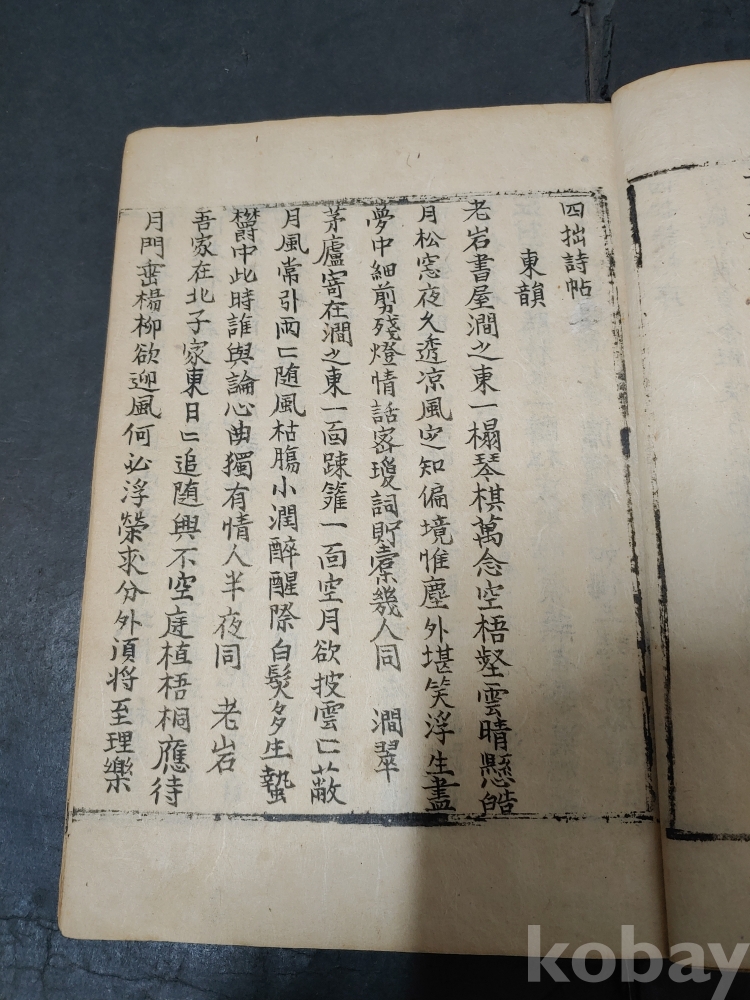 四拙詩帖
東韻
老岩書屋澗之東一榻琴棋萬念空梧壑雲晴懸皓
月松窓夜久透凉風定知偏境惟塵外堪笑浮生盡
夢中細剪残燈情話密瓊詞貯橐幾人同 澗翠
茅廬寄在澗之東一面踈籬一面空月欲披雲〻蔽
月風常引雨〻随風枯腸小潤醉醒際白髮多生蟄
欝中此時誰與論心曲獨有情人半夜同 老岩
吾家在北子家東日〻追随興不空庭植梧桐應待
月門垂楊柳欲迎風何必浮榮求分外湏将至理樂
kobay